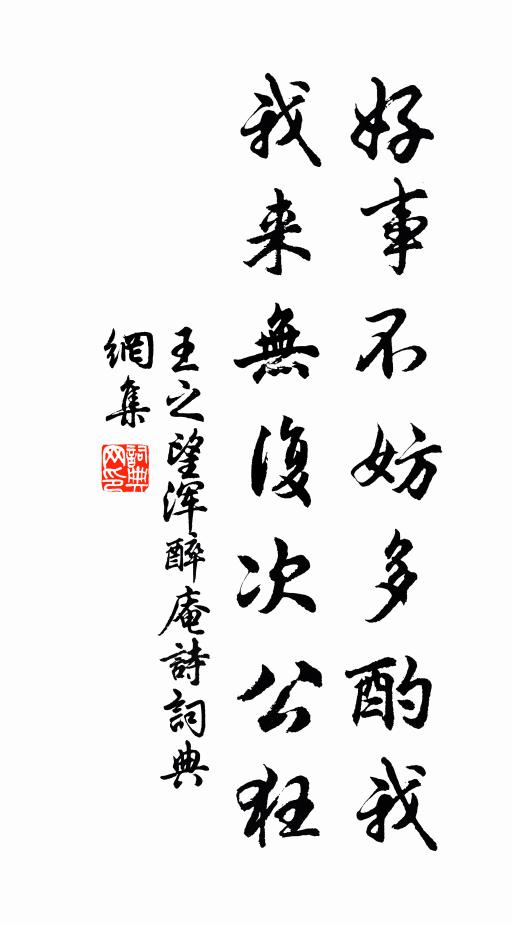 好事不妨多酌我
我来無復次公狂
王之望渾醉庵詩詞典
網集
詞典网印